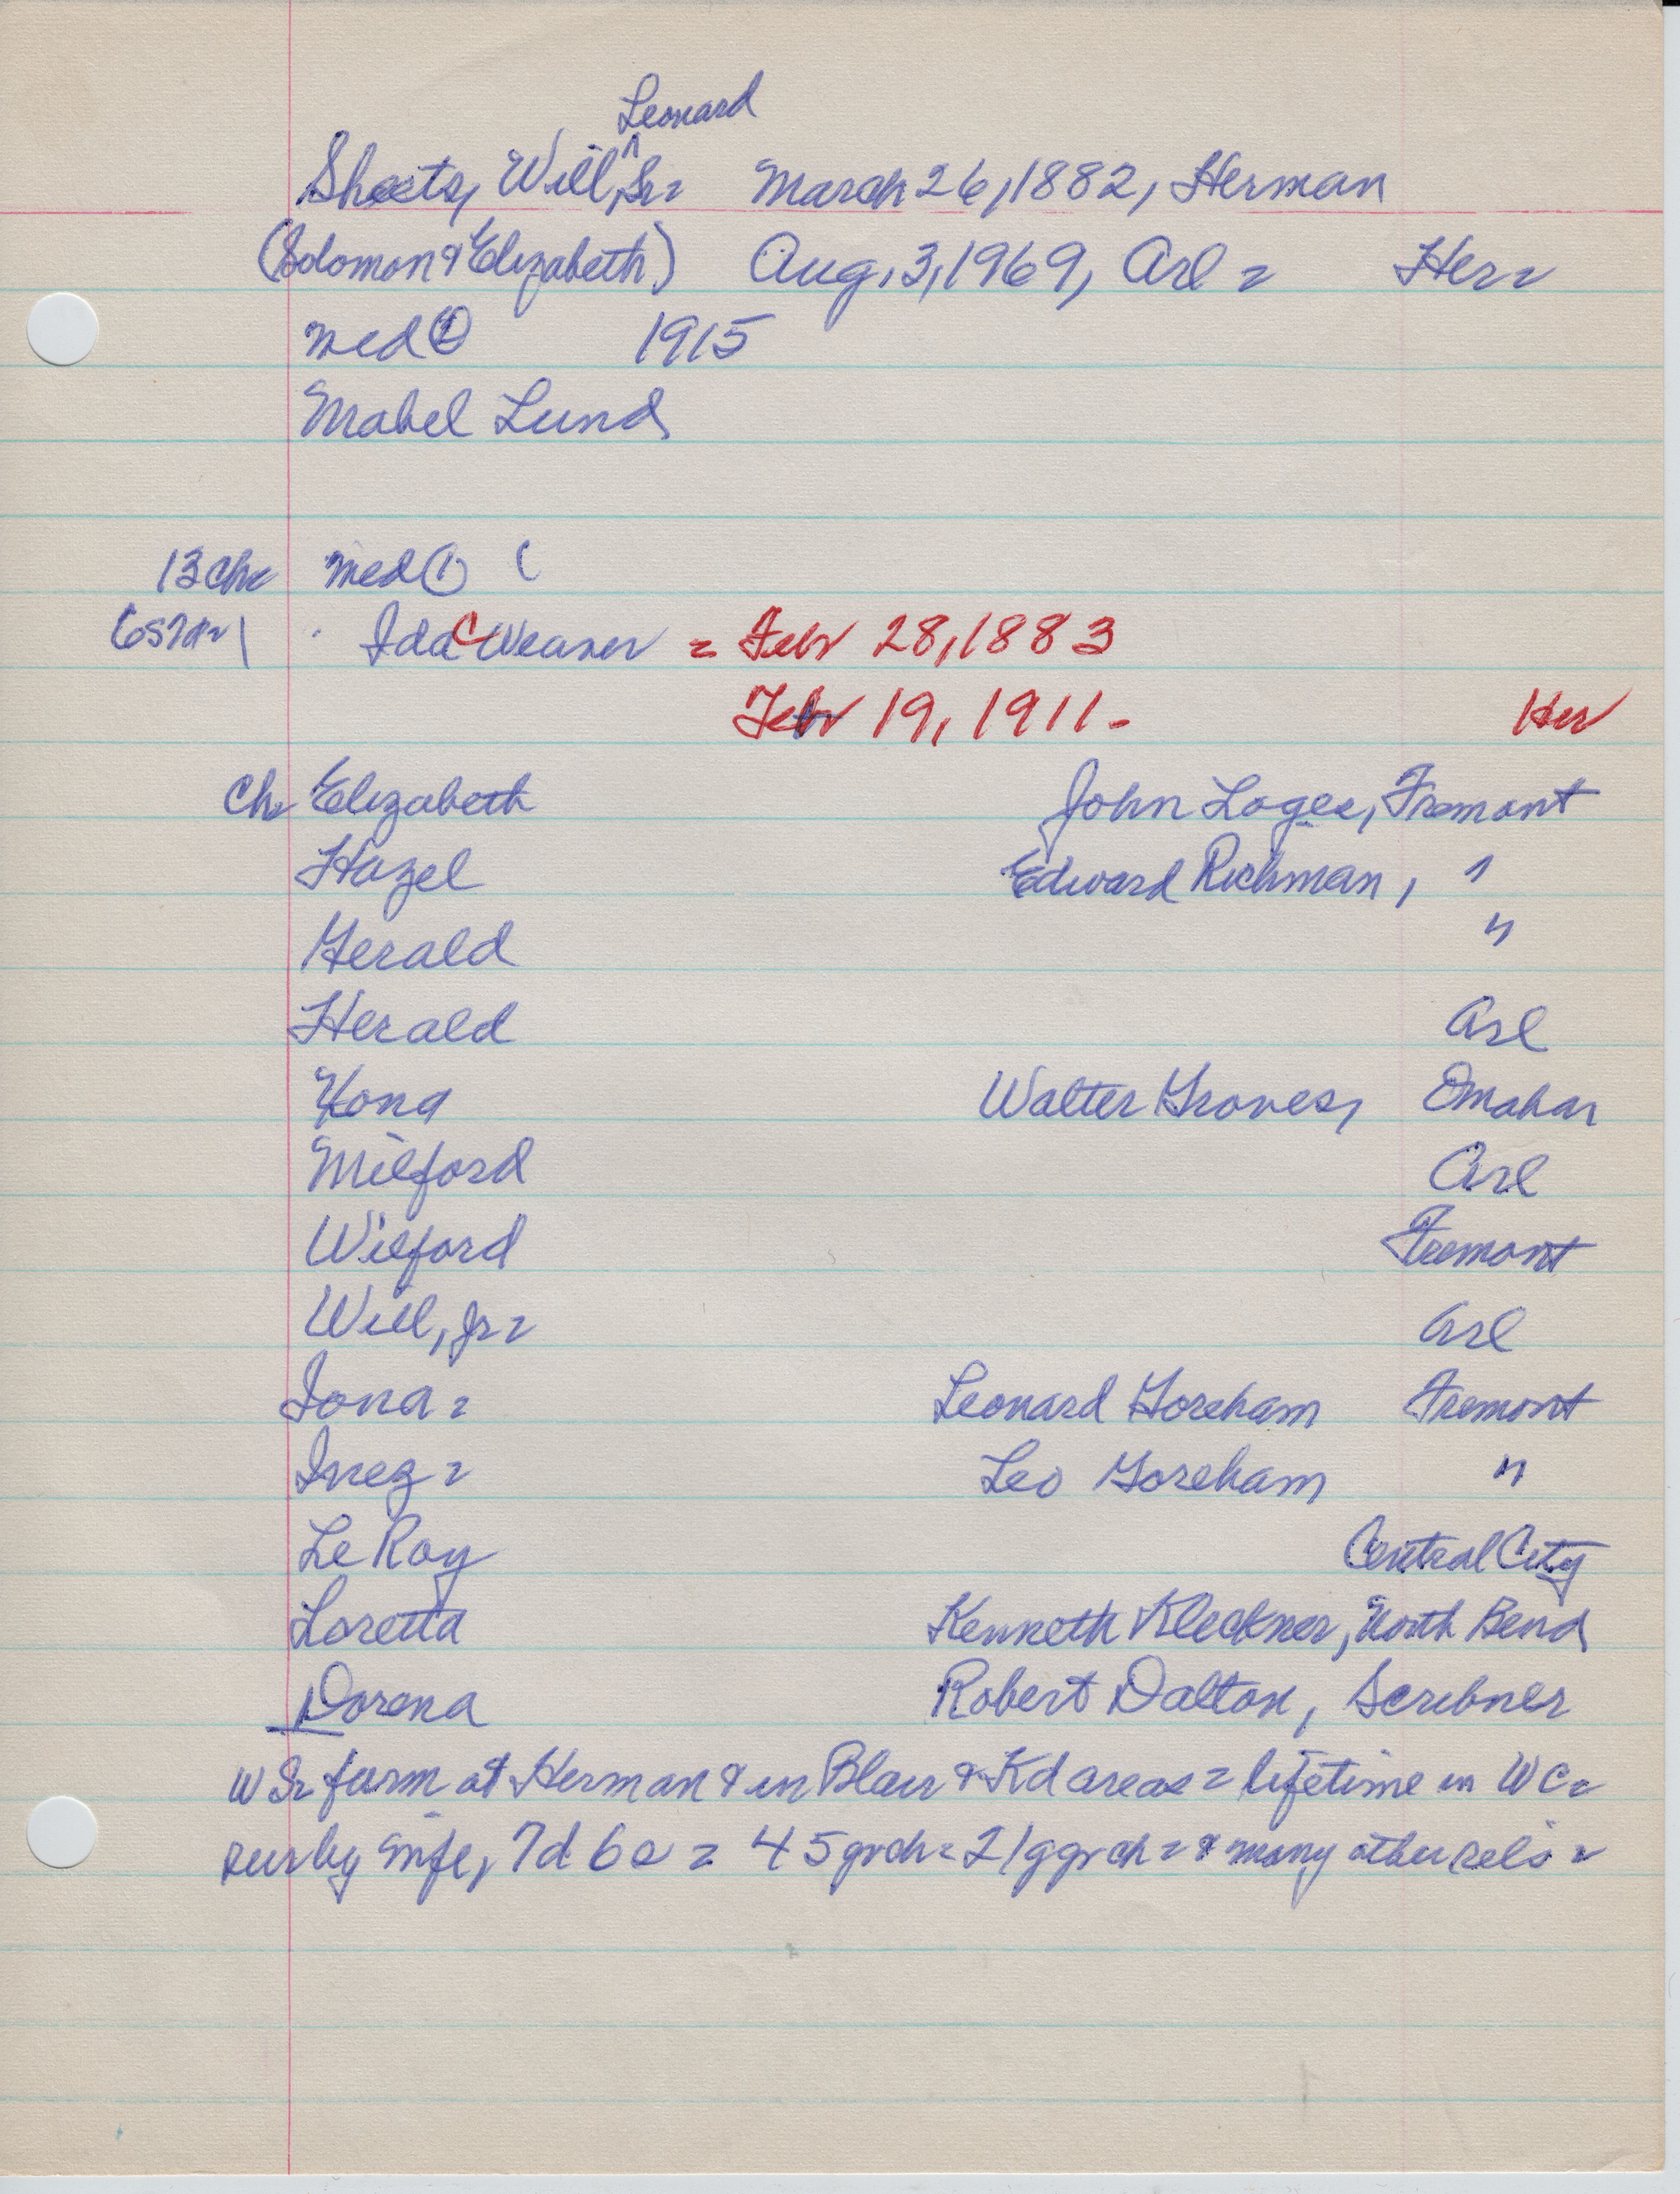 Leonard
Sheets, Will, Sr= March 26, 1882, Herman
(Solomon & Elizabeth) Aug. 3, 1969, Arl = Her=
med ② 1915
Mabel Lund
13 ch= med ① (
Ida C Weaver = Febr 28, 1883
Febr 19, 1911- Her
Ch= Elizabeth John Logee, Fremont
Hazel Edward Richman, "
Gerald "
Herald Arl
Kona Walter Groves, Omaha=
Milford Arl
Wilford Fremont
Will, Jr= Arl
Iona = Leonard Goreham Fremont
Inez = Leo Goreham "
Le Roy Central City
Loretta Kenneth Kleckner, North Bend
Dorena Robert Dalton, Scribner
W Sr farm at Herman & in Blair & Kd areas = lifetime in WC=
sur by wife, 7d 6s = 45 grch = 21 ggrch = & many other rels =